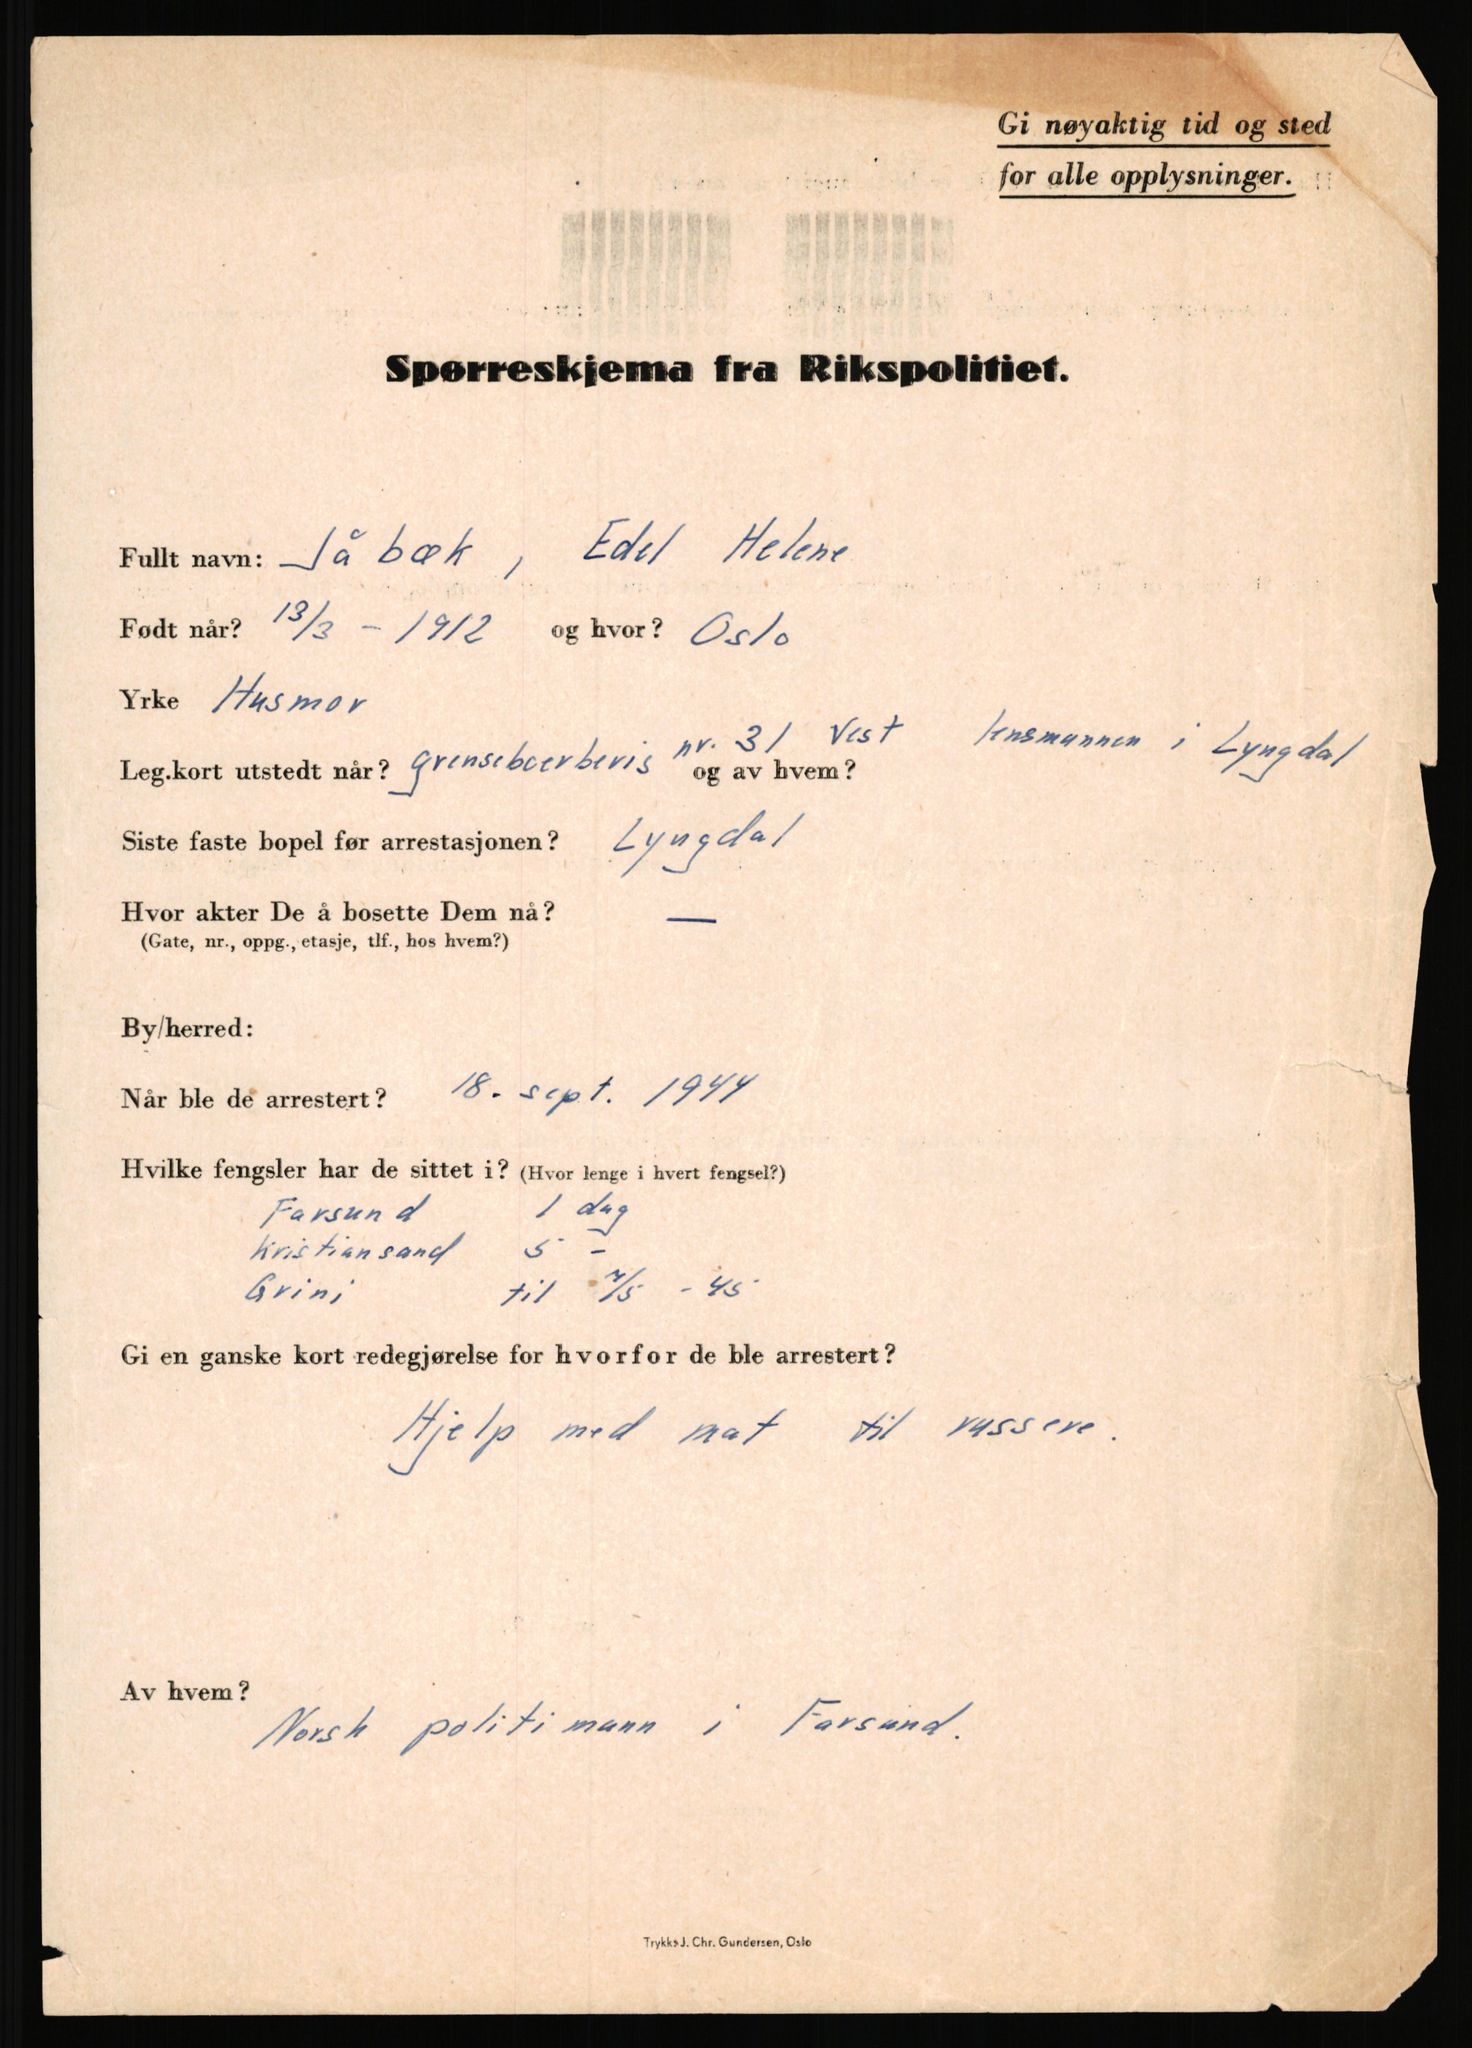 Gi nøyaktig tid og sted
for alle opplysninger.
Spørreskjema fra Rikspolitiet.
Fullt navn: Jåbæk, Edel Helene
Født når? 13/3 - 1912 og hvor? Oslo
Yrke Husmor
Leg.kort utstedt når? grenseboerbevis nr. 31 Vest og av hvem? lensmannen i Lyngdal
Siste faste bopel før arrestasjonen? Lyngdal
Hvor akter De å bosette Dem nå? —
(Gate, nr., oppg., etasje, tlf., hos hvem?)
By/herred:
Når ble de arrestert? 18. sept. 1944
Hvilke fengsler har de sittet i? (Hvor lenge i hvert fengsel?)
Farsund 1 dag
Kristiansand 5 -
Grini til /5 - 45
Gi en ganske kort redegjørelse for hvorfor de ble arrestert?
Hjelp med mat til russere.
Av hvem?
Norsk politimann i Farsund.
Trykk: J. Chr. Gundersen, Oslo